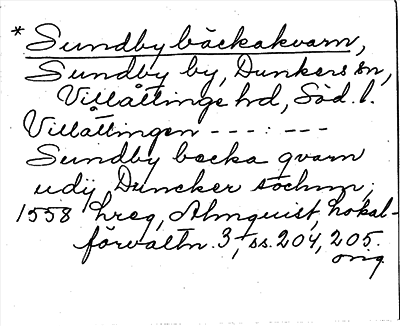 * Sundby bäckakvarn,
Sundby by, Dunkers sn,
Villåttinge hd, Söd. l.
Villåttingen --- : ---
Sundby backa qvarn
udij Duncker sochnn,
1558 hreg, Almquist, Lokal-
förvaltn. 3, ss. 204, 205.
orig